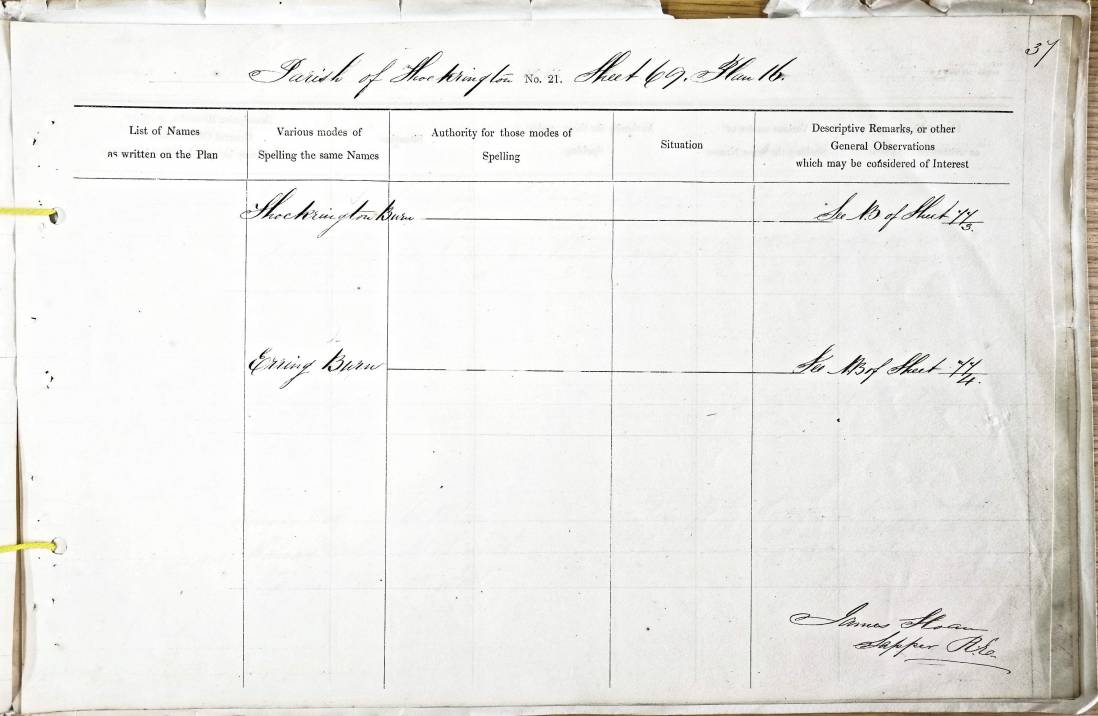 37
Parish of Thockrington No. 21. Sheet 69. Plan 16.
List of Names
as written on the Plan
Various modes of
Spelling the same Names
Authority for those modes of
Spelling
Situation
Descriptive Remarks, or other
General Observations
which may be considered of Interest
Thockrington Burn See NB of Sheet 77/3.
Erring Burn See NB of Sheet 77/4.
James Sloan
Sapper R.E.